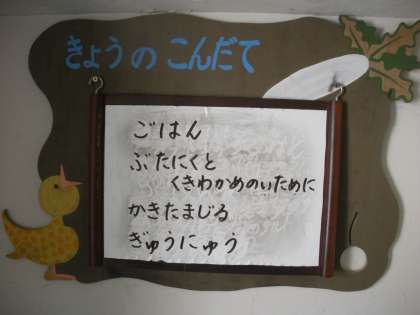 きょうのこんだて
ごはん
ぶたにくと
くきわかめのいために
かきたまじる
ぎゅうにゅう